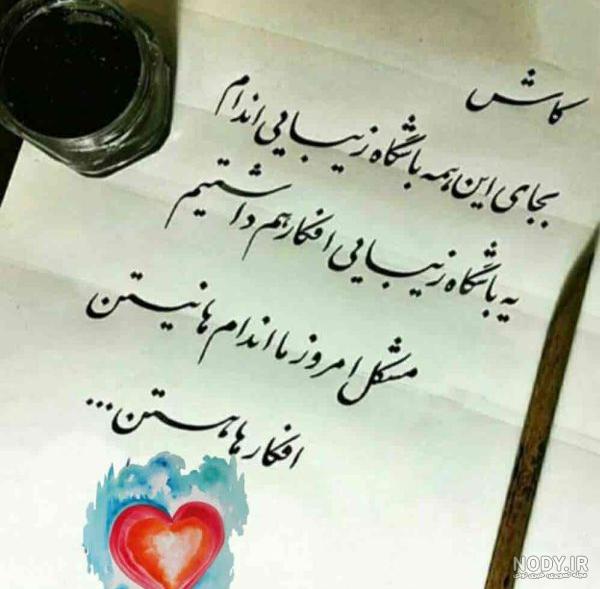 کاش
بجای این همه باشگاه زیبایی اندام
یه باشگاه زیبایی افکار هم داشتیم
مشکل امروز ما اندام ها نیستن
افکارها هستن...
NODY.IR